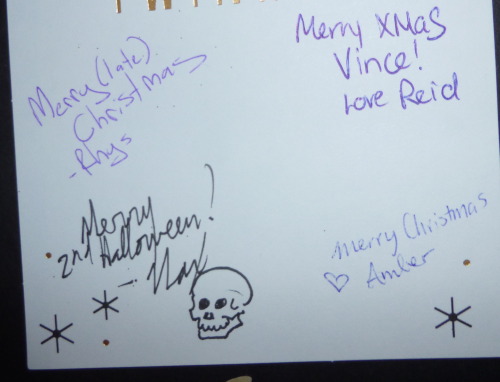 Merry (late)
Christmas
- Rhys
Merry XMAS
Vince!
Love Reid
Merry
2nd Halloween!
Merry Christmas
♡ Amber